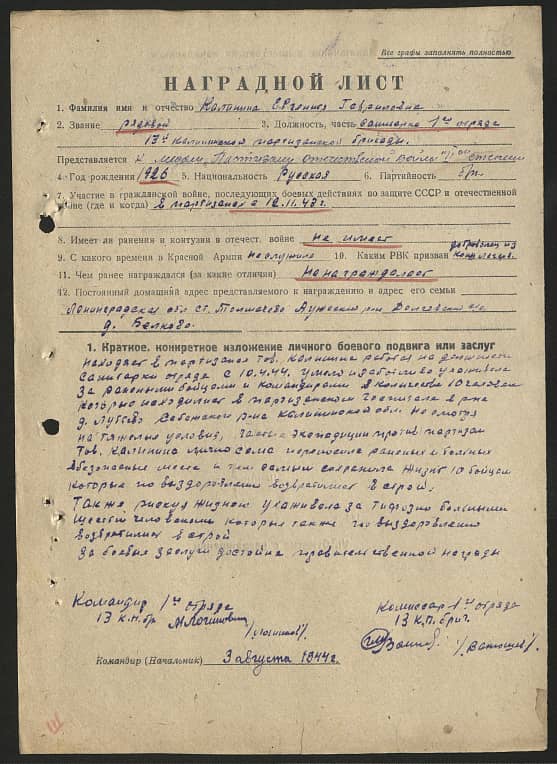 Все графы заполнять полностью
НАГРАДНОЙ ЛИСТ
1. Фамилия имя и отчество Калинина Евгения Гавриловна
2. Звание рядовой 3. Должность, часть санитарка 1го отряда
13й Калининской партизанской бригады.
Представляется к медали, Партизану Отечественной войны" II ой степени
4. Год рождения 1926 5. Национальность Русская 6. Партийность б/п.
7. Участие в гражданской войне, последующих боевых действиях по защите СССР и отечественной
войне (где и когда) в партизанах с 12.11.43 г.
8. Имеет ли ранения и контузии в отечест. войне не имеет
9. С какого времени в Красной Армии не служила 10. Каким РВК призван доброволец из
11. Чем ранее награждался (за какие отличия) Не награждалась
12. Постоянный домашний адрес представляемого к награждению и адрес его семьи
Ленинградская обл ст. Толмачево Лужский р-н
д. Белково.
1. Краткое, конкретное изложение личного боевого подвига или заслуг
находясь в партизанах тов. Калинина работая на должности
санитарки отряда с 10.4.44. умело и заботливо ухаживала
за ранеными бойцами и командирами в количестве 10 человек
которые находились в партизанском госпитале в р-не
д. Себежского р-на Калининской обл. Не смотря
на тяжелые условия, экспедиции против партизан
тов. Калинина лично сама переносила раненых и больных
в безопасные места и тем самым сохранила жизнь 10 бойцам
которые по выздоровлении возвратились в строй.
Также рискуя жизнью ухаживала за тифозно больными
шестью человеками которые также по выздоровлении
возвратились в строй
За боевые заслуги достойна правительственной награды
Командир 1го отряда
13 К.П.бр.
Комиссар 1го отряда
13 К.П. бриг.
Командир (Начальник) 3 августа 1944 г.